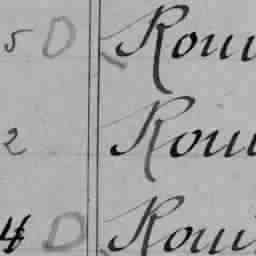 5 D Roui
2 Roui
4 D Roui